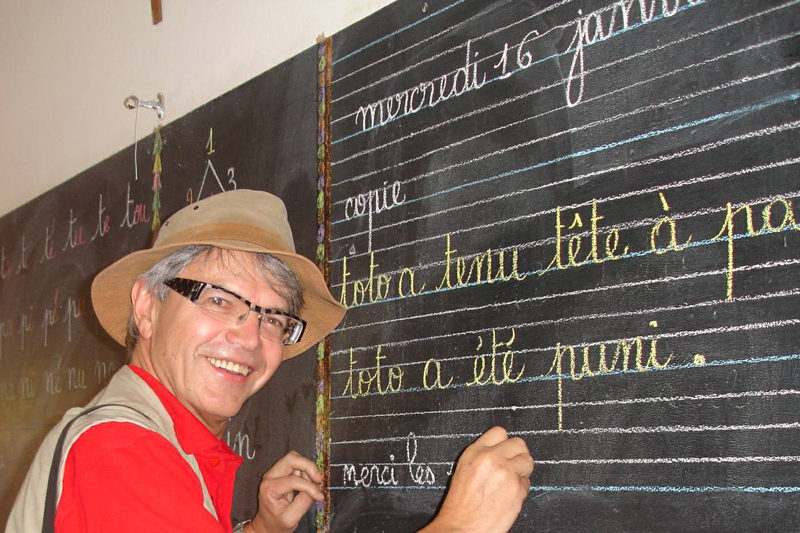 mercredi 16 janvi
copie
toto a tenu tête à pa
toto a été puni .
merci les
1
2 3
t t té tu te tou
pi pé
ni né nu
un